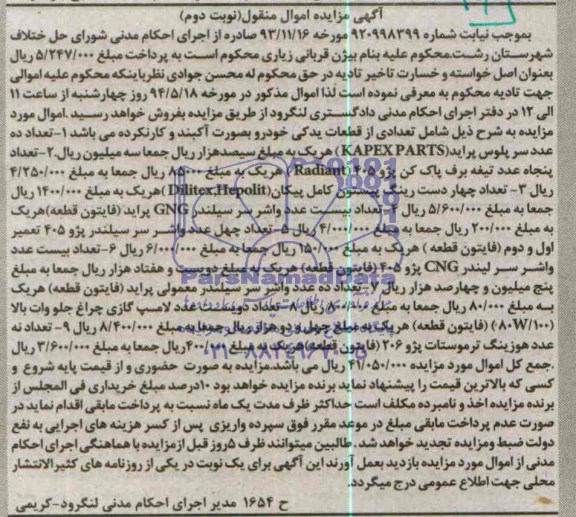 آگهی مزایده اموال منقول(نوبت دوم)
بموجب نیابت شماره ۹۲۰۹۹۸۳۹۹ مورخه ۹۳/۱۱/۱۶ صادره از اجرای احکام مدنی شورای حل ختلاف
شهرستان رشت.محکوم علیه بنام بیژن قربانی زیاری محکوم است به پرداخت مبلغ ۵/۲۴۷/۰۰۰ ریال
بعنوان اصل خواسته و خسارت تاخیر تادیه در حق محکوم له محسن جوادی نظرباینکه محکوم علیه اموالی
جهت تادیه محکوم به معرفی نموده است لذا اموال مذکور در مورخه ۹۴/۵/۱۸ روز چهارشنبه از ساعت ۱۱
الی ۱۲ در دفتر اجرای احکام مدنی دادگستری لنگرود از طریق مزایده بفروش خواهد رسید .اموال مورد
مزایده به شرح ذیل شامل تعدادی از قطعات یدکی خودرو بصورت آکبند و کارنکرده می باشد ۱-تعداد ده
عدد سر پلوس پراید(KAPEX PARTS) هریک به مبلغ سیصدهزار ریال جمعا سه میلیون ریال.۲-تعداد
پنجاه عدد تیغه برف پاک کن پژو ۴۰۵ (Radiant) هریک به مبلغ ۸۵۰۰۰ ریال جمعا به مبلغ ۴/۲۵۰/۰۰۰
ریال ۳- تعداد چهار دست رینگ پیستون کامل پیکان(Dilitex,Hepolit)هریک به مبلغ ۱۴۰۰/۰۰۰ ریال
جمعا به مبلغ ۵/۶۰۰/۰۰۰ ریال ۴-تعداد بیست عدد واشر سر سیلندر GNG پراید (فایتون قطعه)هریک
به مبلغ ۲۰۰/۰۰۰ ریال جمعا به مبلغ ۴/۰۰۰/۰۰۰ ریال ۵-تعداد چهل عدد واشر سر سیلندر پژو ۴۰۵ تعمیر
اول و دوم (فایتون قطعه ) هریک به مبلغ ۱۵۰/۰۰۰ ریال جمعا به مبلغ ۶/۰۰۰/۰۰۰ ریال ۶-تعداد بیست عدد
واشر سر لیندر CNG پژو ۴۰۵ (فایتون قطعه) هریک به مبلغ دویست و هفتاد هزار ریال جمعا به مبلغ
پنج میلیون و چهارصد هزار ریال ۷-تعداد ده عدد واشر سر سیلندر معمولی پراید (فایتون قطعه) هریک
به مبلغ ۸۰/۰۰۰ ریال جمعا به مبلغ ۸۰۰/۰۰۰ ریال ۸-تعداد دویست عدد لامپ گازی چراغ جلو وات بالا
(۸۰W/۱۰۰) (فایتون قطعه) هریک به مبلغ چهل و دو هزار ریال جمعا به مبلغ ۸/۴۰۰/۰۰۰ ریال ۹- تعداد نه
عدد هوزینگ ترموستات پژو ۲۰۶ (فایتون قطعه)هریک به مبلغ ۴۰۰/۰۰۰ریال جمعا به مبلغ ۳/۶۰۰/۰۰۰ ریال
.جمع کل اموال مورد مزایده ۴۱/۰۵۰/۰۰۰ ریال می باشد.مزایده به صورت حضوری و از قیمت پایه شروع و
کسی که بالاترین قیمت را پیشنهاد نماید برنده مزایده خواهد بود ۱۰درصد مبلغ خریداری فی المجلس از
برنده مزایده اخذ و نامبرده مکلف است حداکثر ظرف مدت یک ماه نسبت به پرداخت مابقی اقدام نماید در
صورت عدم پرداخت مابقی مبلغ در موعد مقرر فوق سپرده واریزی پس از کسر هزینه های اجرایی به نفع
دولت ضبط ومزایده تجدید خواهد شد. طالبین میتوانند ظرف ۵روز قبل ازمزایده با هماهنگی اجرای احکام
مدنی از اموال مورد مزایده بازدید بعمل آورند این آگهی برای یک نوبت در یکی از روزنامه های کثیرالانتشار
محلی جهت اطلاع عمومی درج میگردد.
ح ۱۶۵۴ مدیر اجرای احکام مدنی لنگرود-کریمی
ParsNamadData
۰۲۱-۸۸۳۴۹۶۷۰-۵